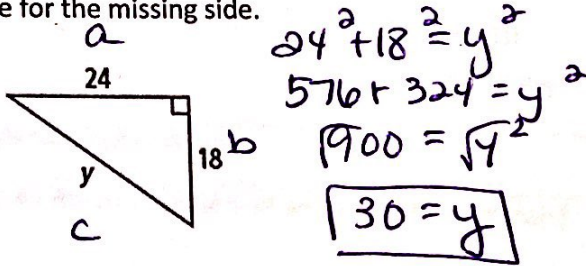 e for the missing side.
a
24
18 b
y
c
24² + 18² = y²
576 + 324 = y²
√900 = √y²
30 = y